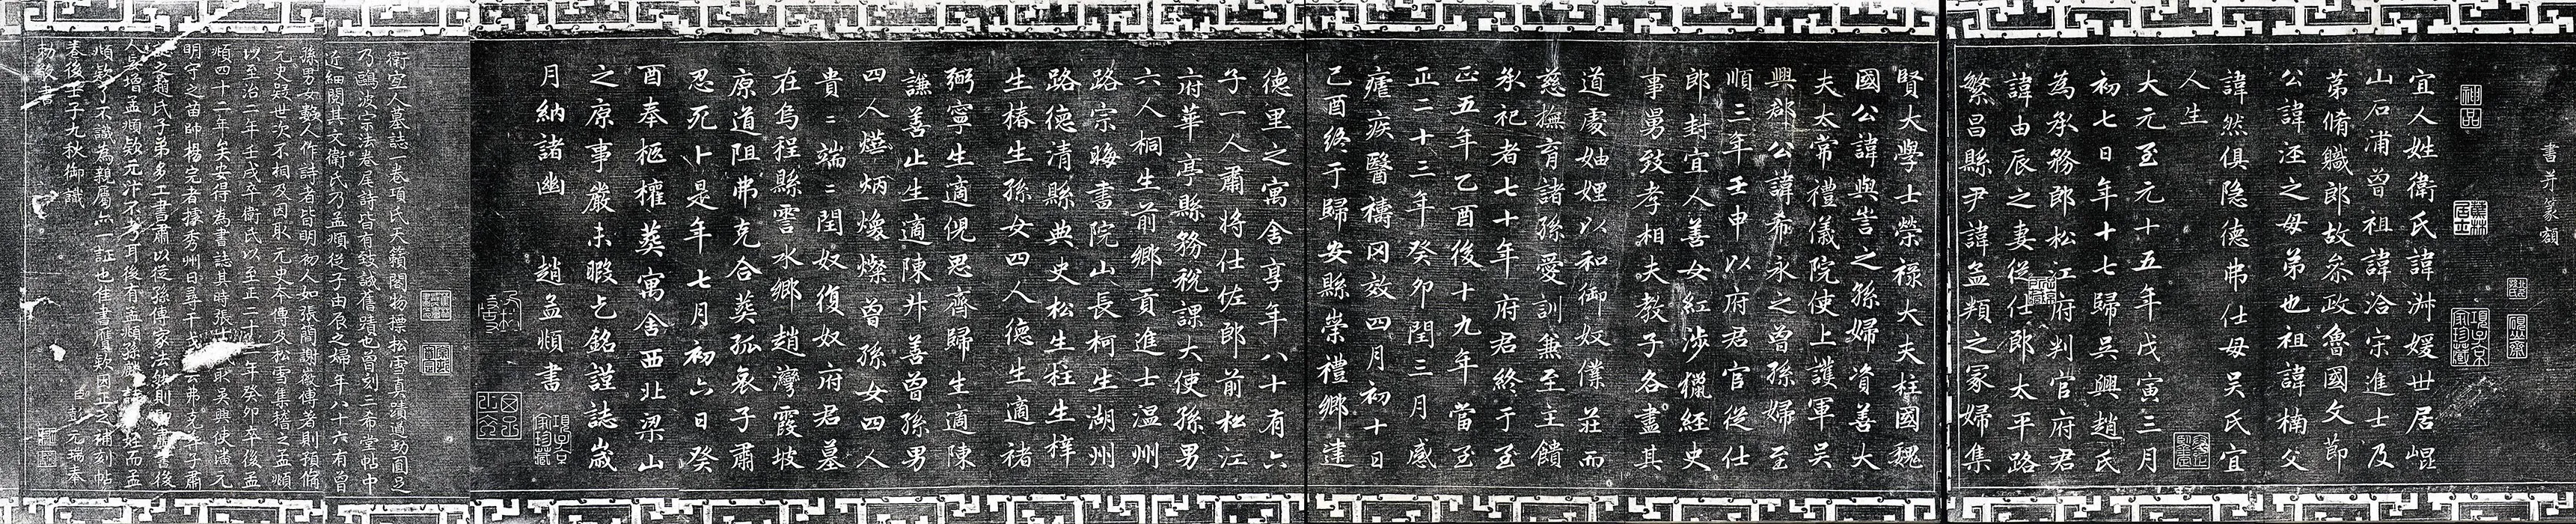 書并篆額
神品
宜人姓衛氏諱淑媛世居崐
山石浦曽祖諱洽宗進士及
苐脩軄郎故叅政魯國文節
公諱涇之母弟也祖諱楠父
諱然俱隐德弗仕母吴氏宜
人生
大元至元十五年戊寅三月
初七日年十七歸吴興趙氏
為承務郎松江府判官府君
諱由辰之妻從仕郎太平路
繁昌縣尹諱孟頖之冡婦集
賢大學士榮禄大夫柱國魏
國公諱與訔之孫婦資善大
夫太常禮儀院使上護軍吴
興郡公諱希永之曽孫婦至
順三年壬申以府君官從仕
郎封宜人善女紅渉獵經史
事舅致孝相夫教子各盡其
道處妯娌以和御奴僕莊而
慈撫育諸孫愛訓兼至主饋
承祀者七十年府君終于至
正五年乙酉後十九年當至
正二十三年癸卯閏三月感
瘧疾醫禱冈效四月初十日
己酉終于歸安縣崇禮鄉達
德里之寓舍享年八十有六
子一人肅將仕佐郎前松江
府華亭縣務税課大使孫男
六人桐生前鄉貢進士温州
路宗晦書院山長柯生湖州
路德清縣典史松生柱生梓
生椿生孫女四人德生適褚
弼寧生適倪思齊歸生適陳
謙善止生適陳升善曽孫男
四人爕炳爌燦曽孫女四人
貴二端二閏奴復奴府君墓
在烏程縣雲水鄉趙灣霞坡
原道阻弗克合葬孤哀子肅
忍死卜是年七月初六日癸
酉奉柩權葬寓舍西北梁山
之原事嚴未暇乞銘謹誌歳
月納諸幽　趙孟頫書
項子京家珍藏
衛宜人墓誌一巻項氏天籟閣物摽松雪真蹟過勁圓足
乃鷗波宗法巻尾詩皆有致誠舊蹟也曽刻三希堂帖中
近細閲其文衛氏乃孟頫從子由辰之婦年八十六有曽
孫男女數人作詩者皆明初人如張簡謝徽傳著則預脩
元史疑世次不相及因取元史本傳及松雪集稽之孟頫
以至治二年壬戌卒衛氏以至正二十三年癸卯卒後孟
頫四十二年矣安得為書誌其時張士
明守之苗帥楊完者擾秀州日尋干戈
之趙氏子弟多工書肅以從孫傳家法
人妄增孟頫欵元汴不考耳後有孟頫孫麟
頫欵了不識為親屬亦一証也佳書贋欵因正之補刻帖
巻後壬子九秋御識
臣彭元瑞奉
勅敬書